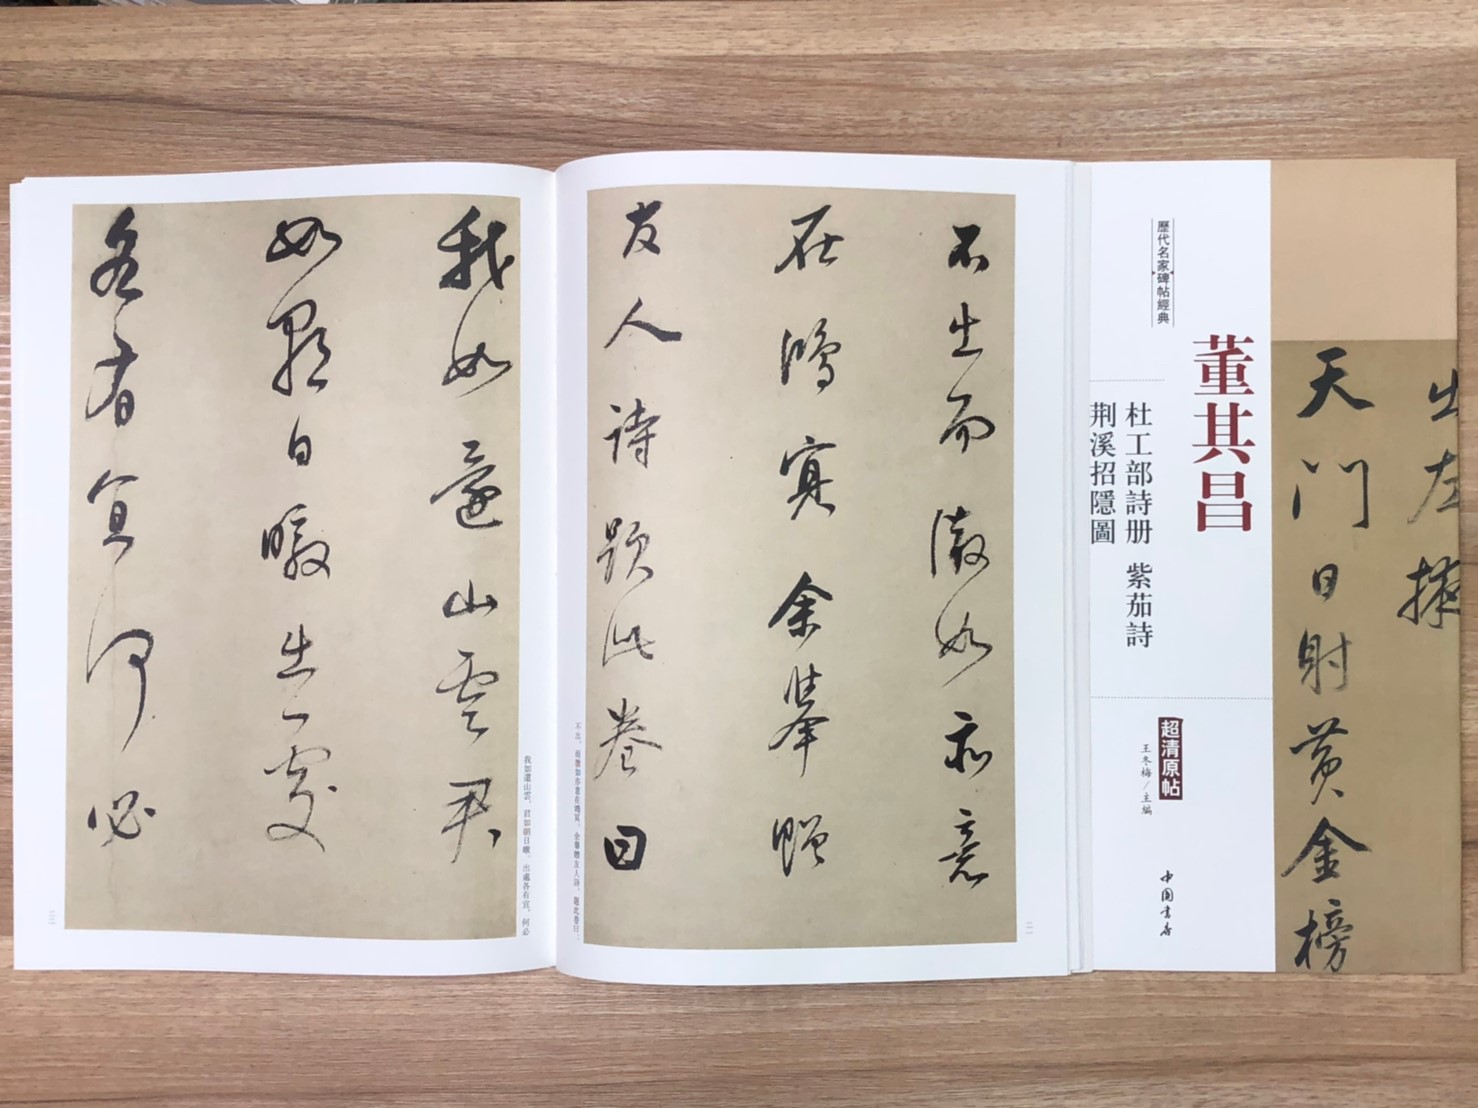 出左掖
天門日射黃金榜
歷代名家碑帖經典
董其昌
杜工部詩册 紫茄詩
荆溪招隱圖
超清原帖
王冬梅/主編
中国書店
不出而徵如亦意
在鴻冥余舉贈
友人詩題此卷曰
不出，而徵如亦意在鴻冥，余舉贈友人詩，題此卷曰：
我如還山雲君
如朝日暾出處
各有宜何必
我如還山雲，君如朝日暾，出處各有宜，何必